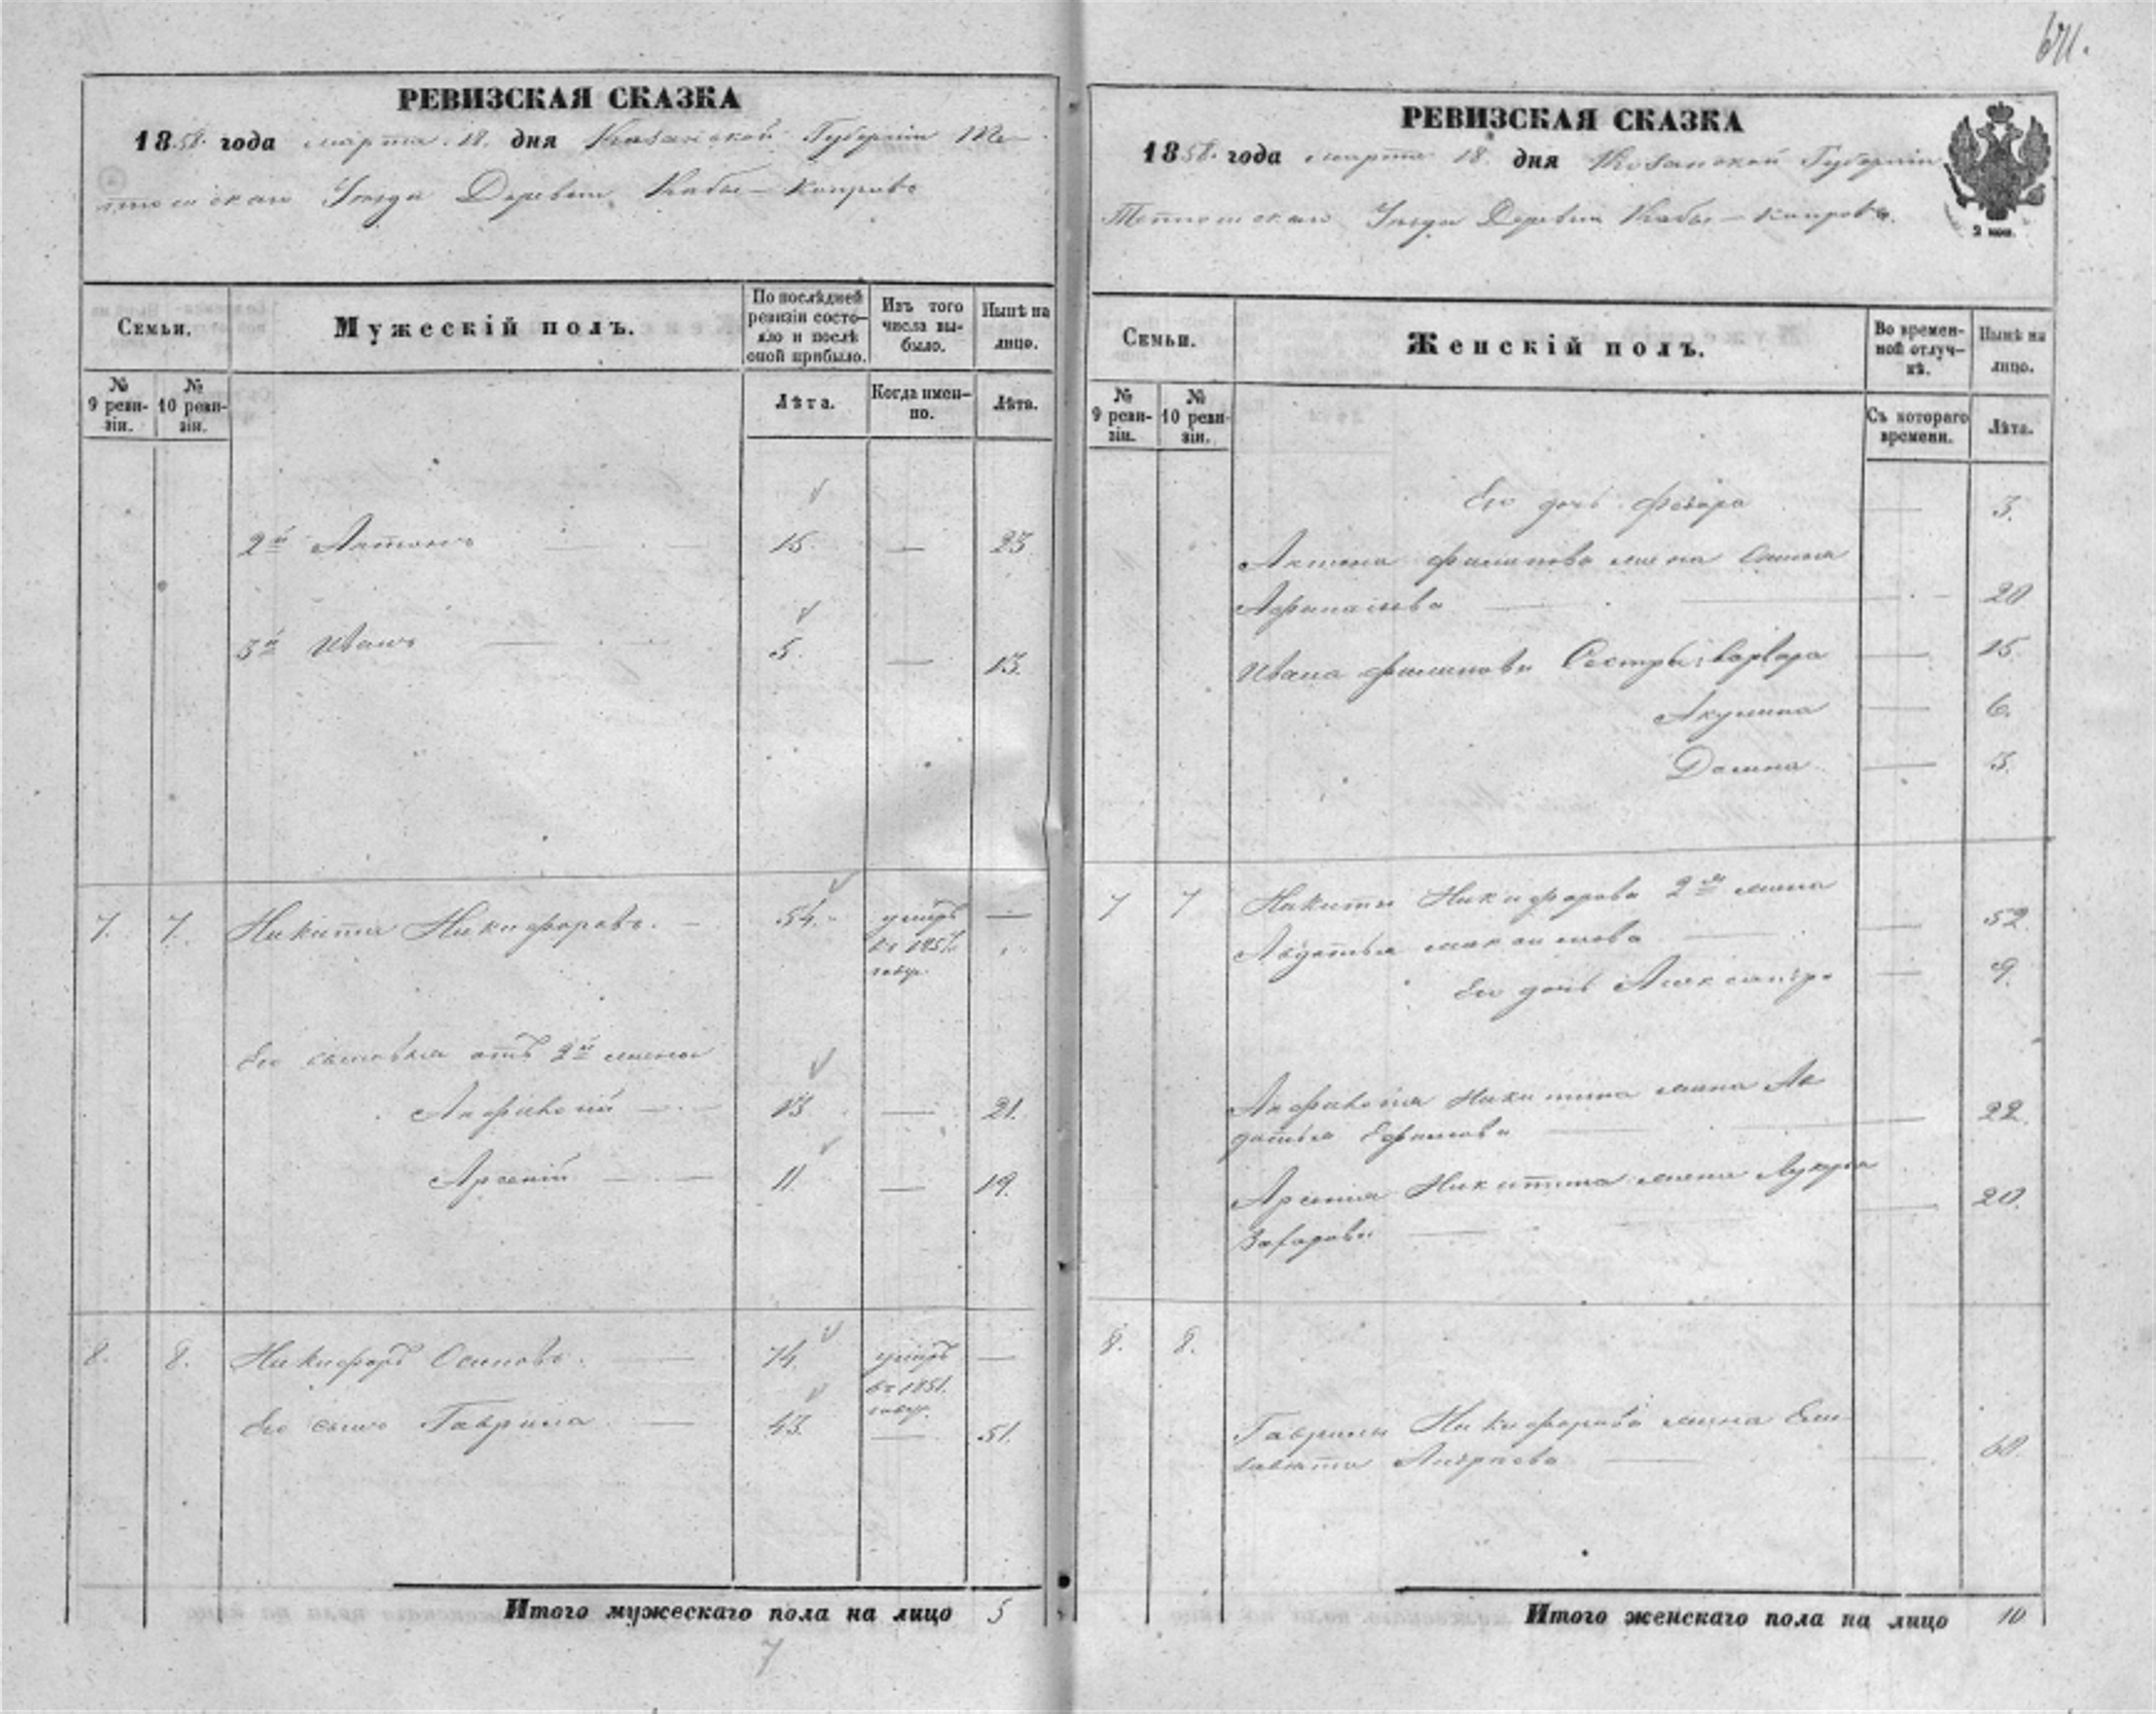 641.
РЕВИЗСКАЯ СКАЗКА
1858. года марта 18. дня Казанской Губернiи Те-
тюшскаго Уезда Деревни Кабы-Копровъ
Семьи.
Мужескій полъ.
По послѣдней ревизіи состо-
яло и послѣ
оной прибыло.
Изъ того
числа вы-
было.
Нынѣ на
лицо.
№
9 реви-
зіи.
№
10 реви-
зіи.
Лѣта.
Когда имен-
но.
Лѣта.
2й Антонъ 15. — 23
3й Иванъ 5. — 13.
7. 7. Никита Никифоровъ. 54. умеръ —
въ
году.
Его сыновья отъ 2й жены
13 — 21.
Арсений 11. — 19.
8. 8. Никифоръ Осиповъ. 74. умеръ —
въ 1851.
году.
Его сынъ Гаврила 43. — 51.
Итого мужескаго пола на лицо 5
7
РЕВИЗСКАЯ СКАЗКА
1858. года марта 18. дня Казанской Губернiи
Тетюшскаго Уезда Деревни Кабы-Копровъ.
2 коп.
Семьи.
Женскій полъ.
Во времен-
ной отлуч-
кѣ.
Нынѣ на
лицо.
№
9 реви-
зіи.
№
10 реви-
зіи.
Съ котораго
времени.
Лѣта.
Его дочь — 3.
Антона Филипова жена
Афанасьева 20
Ивана Филипова Сестры: Варвара — 15.
Акулина — 6.
Домна — 3.
7 7 Никиты Никифорова 2я жена
Авдотья Максимова — 52.
Его дочь Александра — 9.
Никитина жена Ав-
дотья Ефимова — 22.
Арсения Никитина жена Лукерья
Захарова — 20.
8. 8.
Гаврилы Никифорова жена Ели-
завета Андреева — 60.
Итого женскаго пола на лицо 10